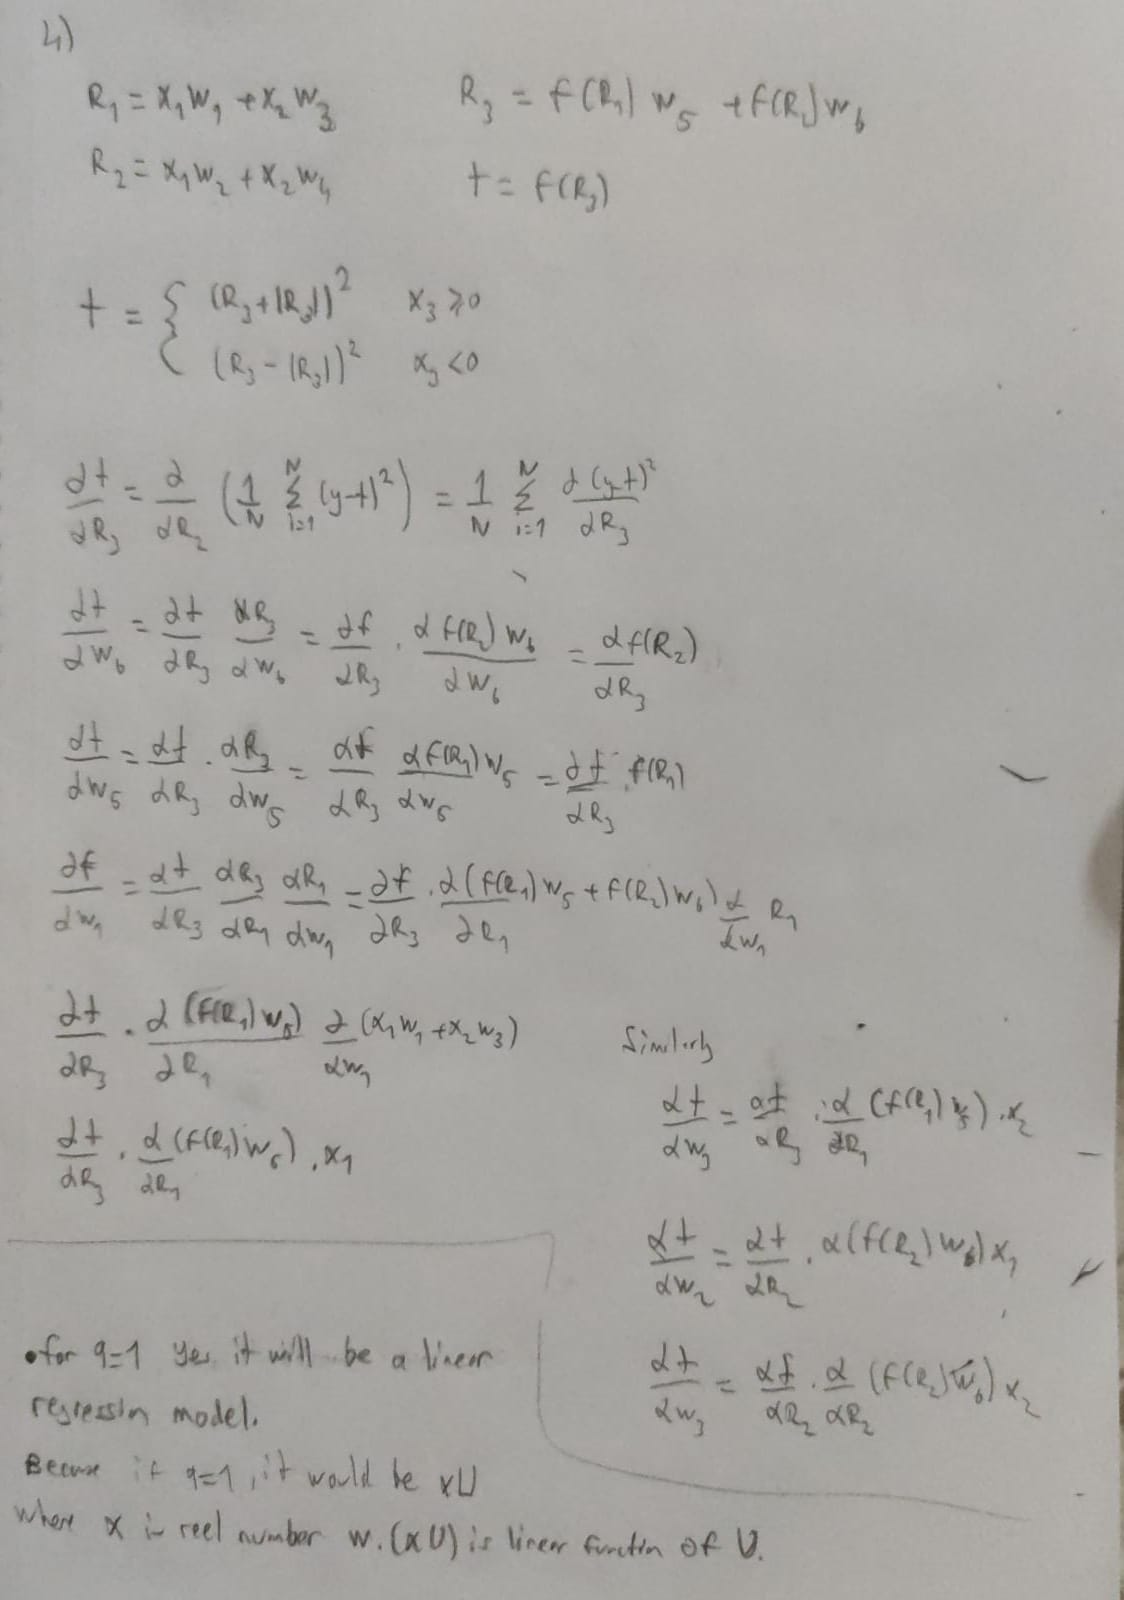 4)
R₁ = x₁w₁ + x₂w₃
R₂ = x₁w₂ + x₂w₄
R₃ = f(R₁) w₅ + f(R₂) w₆
t = f(R₃)
t = { (R₃+|R₃|)² x₃ ⩾ 0
(R₃-|R₃|)² x₃ < 0
∂t/∂R₃ = ∂/∂R₂ (1/N Σ_{i=1}^{N} (y-t)²) = 1/N Σ_{i=1}^{N} ∂(y-t)²/∂R₃
∂t/∂w₆ = ∂t/∂R₃ ∂R₃/∂w₆ = ∂f/∂R₃ . ∂f(R₂)w₆/∂w₆ = ∂f(R₂)/∂R₃
∂t/∂w₅ = ∂t/∂R₃ . ∂R₃/∂w₅ = ∂t/∂R₃ ∂f(R₁)w₅/∂w₅ = ∂t/∂R₃ . f(R₁)
∂f/∂w₁ = ∂t/∂R₃ ∂R₃/∂R₁ ∂R₁/∂w₁ = ∂f/∂R₃ . ∂(f(R₁)w₅ + f(R₂)w₆)/∂R₁ ∂/∂w₁ R₁
∂t/∂R₃ . ∂(f(R₁)w₅)/∂R₁ ∂(x₁w₁+x₂w₃)/∂w₁
∂t/∂R₃ . ∂/∂R₁ (f(R₁)w₅) . x₁
Similarly
∂t/∂w₃ = ∂t/∂R₃ . ∂/∂R₁ (f(R₁)w₅) . x₂
∂t/∂w₂ = ∂t/∂R₂ . ∂(f(R₂)w₆) x₁
∂t/∂w₃ = ∂f/∂R₂ . ∂/∂R₂ (f(R₂)w₆) x₂
• for q=1 yes, it will be a linear
regression model.
Because if q=1, it would be xU
where x is reel number w.(xU) is linear function of U.